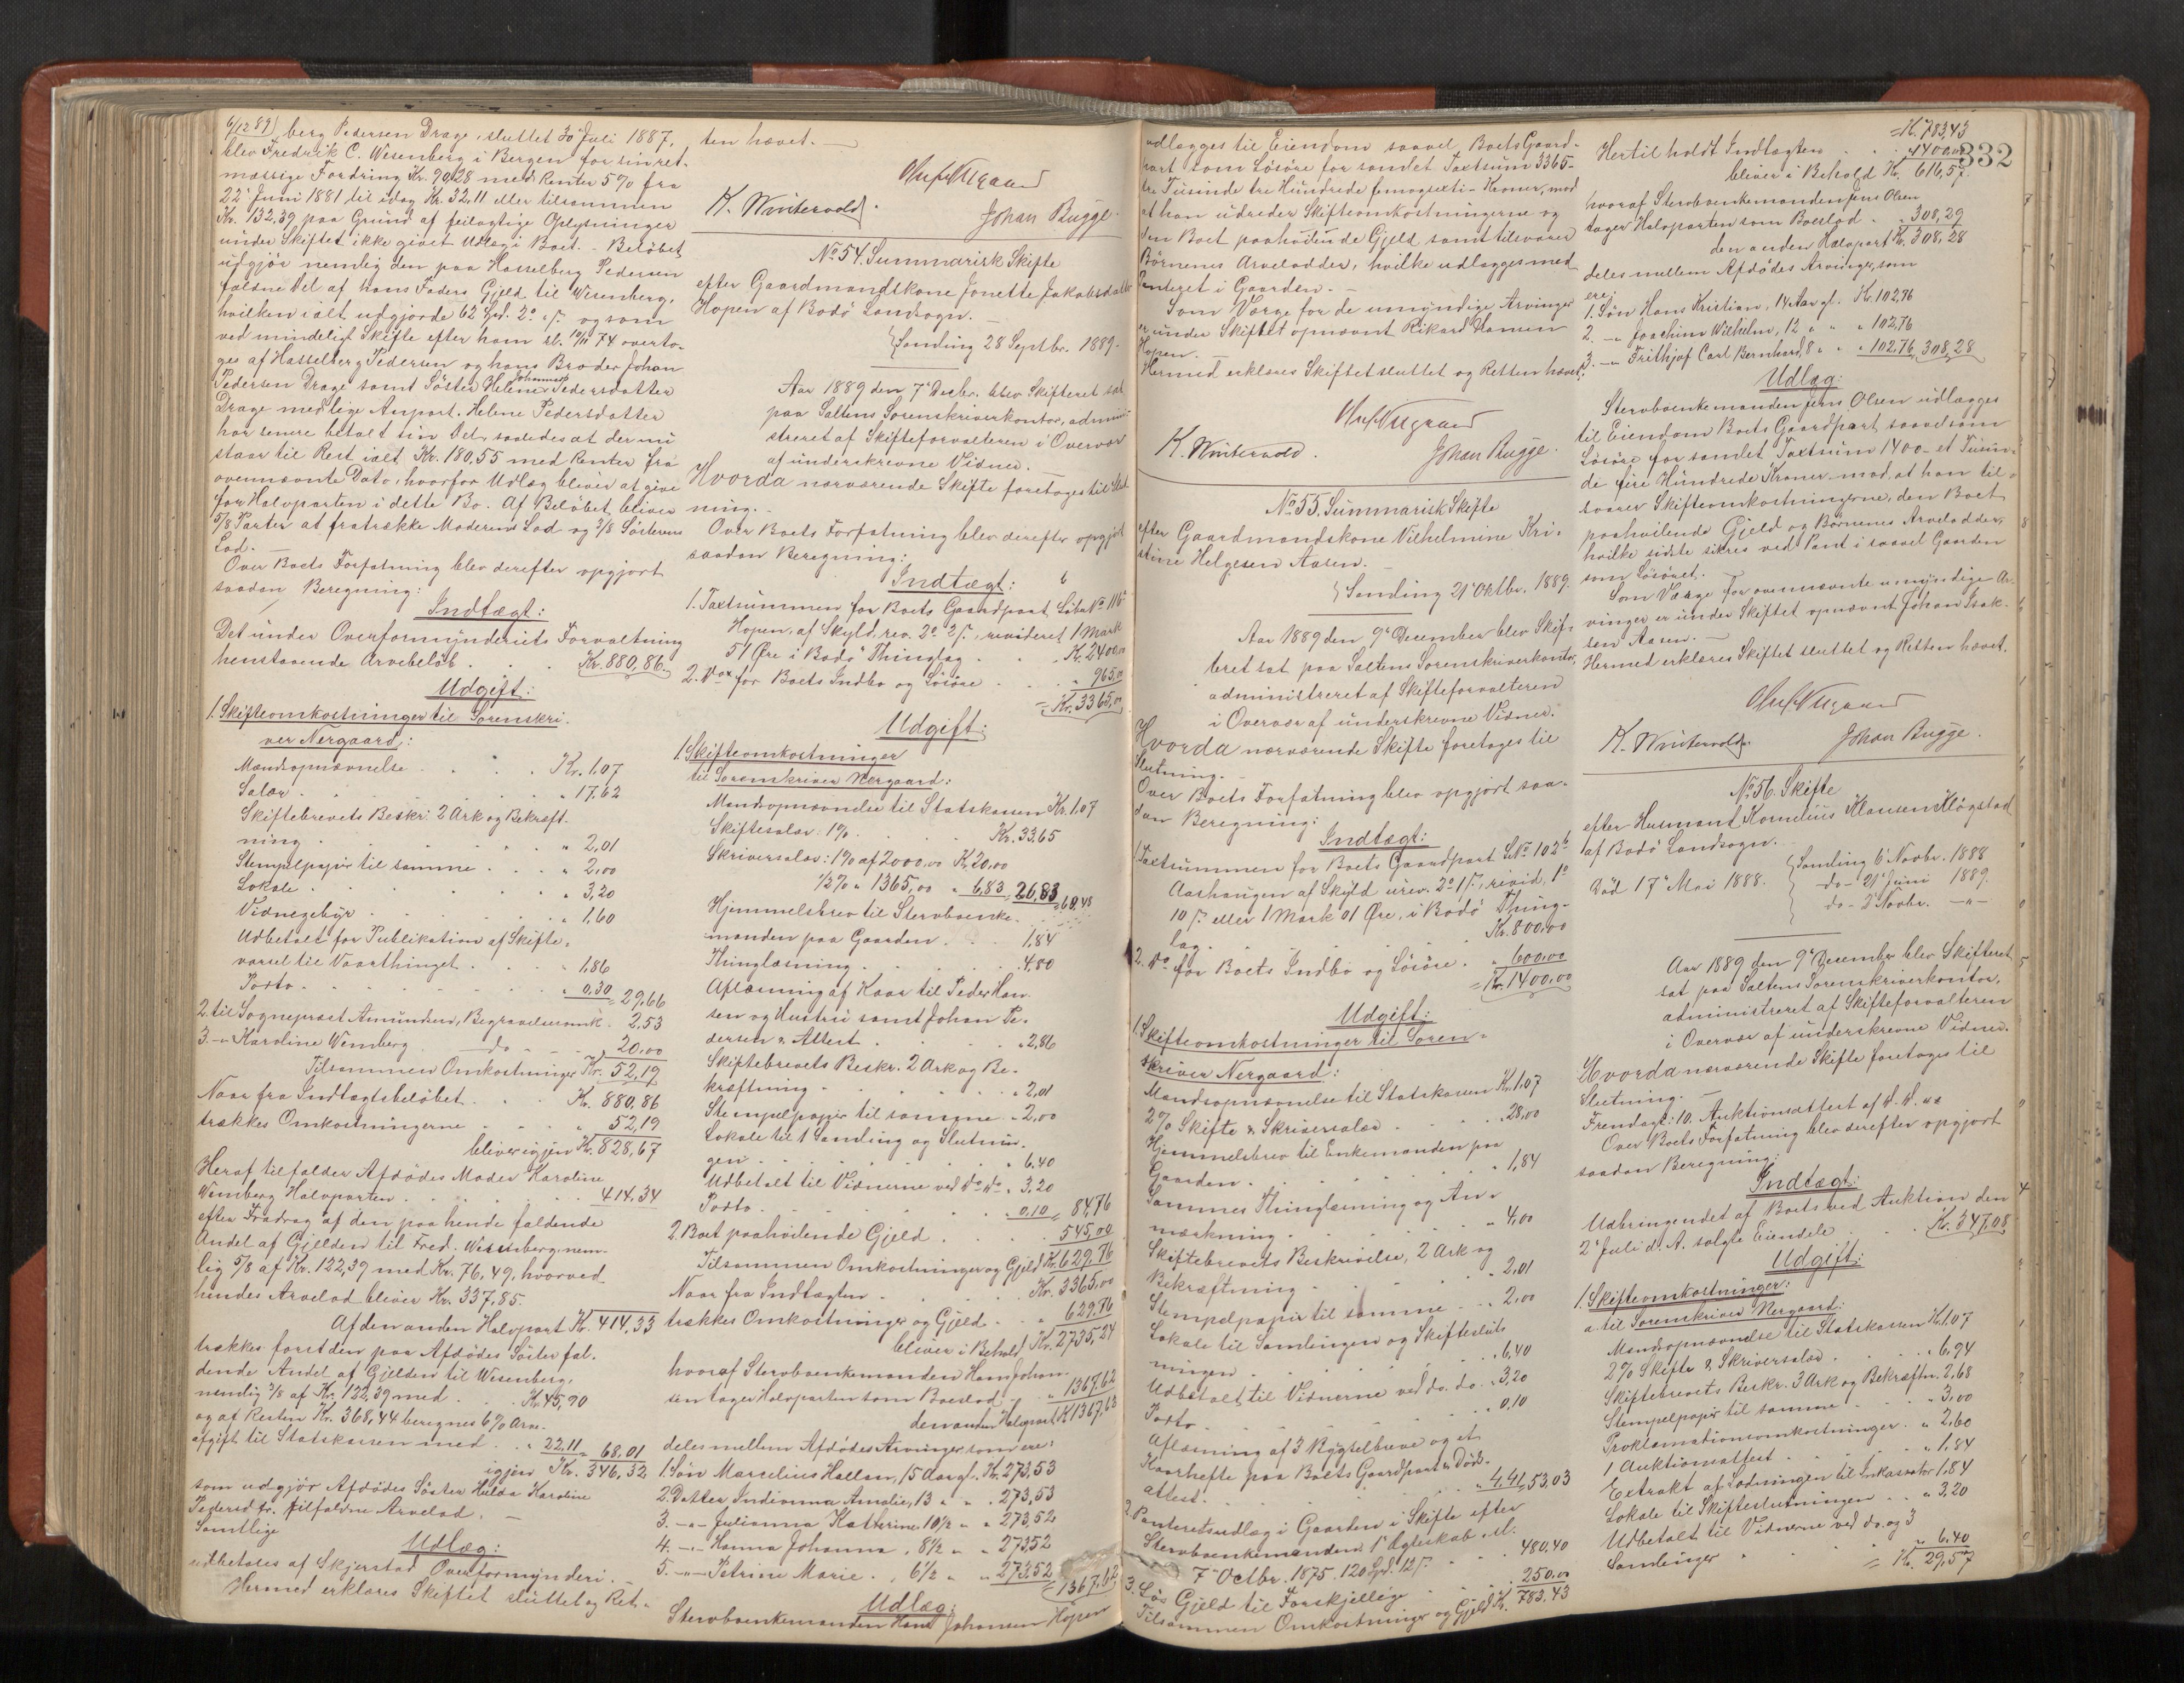 6/12 89
berg Pedersen Drage, sluttet 30 Juli 1887,
blev Fredrik C. Wesenberg i Bergen for sin ret-
mæssige Fordring Kr. 90,28 med Renter 5% fra
22' Juni 1881 til idag Kr. 32,11 eller tilsammen
Kr. 132,39 paa Grund af feilagtige Oplysninger
under Skiftet ikke givet Udlæg i Boet. - Beløbet
udgjør nemlig den paa Hasselberg Pedersen
faldne Del af hans Faders Gjæld til Wesenberg,
hvilken ialt udgjorde 62 Spd. 2 og som
ved mindeligt Skifte efter ham sl. 10/11 74 overto-
ges af Hasselberg Pedersen og hans Broder Johan
Pedersen Drage samt Søster Helene Johanna Pedersdatter
Drage med lige Anpart. Helene Pedersdatter
har senere betalt sin Del, saaledes at der nu
staar til Rest ialt Kr. 180,55 med Renter fra
ovennævnte Dato, hvorfor Udlæg bliver at give
for Halvparten i dette Bo. Af Beløbet bliver
5/8 Parter at fratrække Moderens Lod og 3/8 Søsterens
Lod. -
Over Boets Forfatning blev derefter opgjort
saadan Beregning:
Indtægt:
Det under Overformynderiets Forvaltning
henstaaende Arvebeløb . . . Kr. 880,86
Udgift:
1. Skifteomkostninger til Sorenskri-
ver Nergaard:
Mandsopnævnelse . . . Kr. 1,07
Salær . . . " 17,62
Skiftebrevets Beskr: 2 Ark og Bekræft-
ning . . . " 2,01
Stempelpapir til samme . . . " 2,00
Lokale . . . " 3,20
Vidnegebyr . . . " 1,60
Udbetalt for Publikation af Skifte-
varsel til Vaarthinget . . . " 1,86
Porto . . . " 0,30 = 29,66
2. til Sognepræst Amundsen, Begravelsesomk. 2,53
3. -"- Karoline Wenberg do 20,00
Tilsammen Omkostninger Kr. 52,19
Naar fra Indtægtsbeløbet . . . Kr. 880,86
trækkes Omkostningerne . . . " 52,19
bliver igjen Kr. 828,67
Heraf tilfalder Afdødes Moder Karoline
Wenberg Halvparten . . . 414,34
efter Fradrag af den paa hende faldende
Andel af Gjælden til Fred. Wesenberg, nem-
lig 5/8 af Kr. 122,39 med Kr. 76,49, hvorved
hendes Arvelod bliver Kr. 337,85.
Af den anden Halvpart Kr. 414,33
trækkes foret den paa Afdødes Søster fal-
dende Andel af Gjælden til Wesenberg,
nemlig 3/8 af Kr. 122,39 med . . . Kr. 45,90
og af Resten Kr. 368,44 beregnes 6% Arve-
afgift til Statskassen med . . " 22,11 = 68,01
igjen Kr. 346,32
som udgjør Afdødes Søster Hilda Karoline
Pedersdtr. tilfaldne Arvelod. -
Samtlige
Udlæg:
udbetales af Skjerstad Overformynderi. -
Hermed erklæres Skiftet sluttet og Ret-
ten hævet. -
K. Wintervold.
Johan Bugge.
No 54. Summarisk Skifte
efter Gaardmandskone Jonette Jakobsdatter
Hopen af Bodø Landsogn. -
Samling 28 Septbr. 1889.
Aar 1889 den 7' Decbr. blev Skifteret sat
paa Saltens Sorenskriverkontor, admini-
streret af Skifteforvalteren i Overvær
af underskrevne Vidner. -
Hvorda nærværende Skifte foretages til Slut-
ning. -
Over Boets Forfatning blev derefter opgjort
saadan Beregning:
Indtægt:
1. Taxtsummen for Boets Gaardpart Løbe No 116
Hopen, af Skyld, rev. 2 revideret 1 Mark
51 Øre i Bodø Thinglag . . . Kr. 2400,00
2. Do for Boets Indbo og Løsøre . . . " 965,00
= Kr. 3365,00
Udgift:
1. Skifteomkostninger
til Sorenskriver Nergaard:
Mandsopnævnelse til Statskassen Kr. 1,07
Skiftesalær: 1% . . . Kr. 33,65
Skriversalær: 1% af 2000,00 Kr. 20,00
1/2% " 1365,00 " 6,83 = 26,83 60,48
Hjemmelsbrev til Stervboenke-
manden paa Gaarden . . . 1,84
Thinglæsning . . . 4,80
Aflæsning af Kaar til Peder Han-
sen og Hustru samt Johan Pe-
dersen & Attest . . . " 2,86
Skiftebrevets Beskr. 2 Ark og Be-
kræftning . . . " 2,01
Stempelpapir til samme . " 2,00
Lokale til 1 Samling og Slutnin-
gen . . . " 6,40
Udbetalt til Vidnerne ved do do . 3,20
Porto . . . " 0,10 = 84,76
2. Boet paahvilende Gjæld . . . 545,00
Tilsammen Omkostninger og Gjæld Kr. 629,76
Naar fra Indtægten . . . Kr. 3365,00
trækkes Omkostninger og Gjæld . . " 629,76
bliver i Behold Kr. 2735,24
hvoraf Stervboenkemanden Hans Johan-
sen tager Halvparten som Boeslod . . " 1367,62
den anden Halvpart Kr. 1367,62
deles mellem Afdødes Arvinger som ere:
1. Søn Marcelius Hallan, 15 Aar gl. Kr. 273,53
2. Datter Indianna Amalie, 13 " " " 273,53
3. -"- Julianna Katherine 10 1/2 " " 273,52
4. -"- Hanna Johanna, 8 1/2 " " 273,52
5. -"- Petrine Marie . , 6 1/2 " " 273,52
= 1367,62
Udlæg:
Stervboenkemanden Hans Johansen Hopen
udlægges til Eiendom saavel Boets Gaard-
part som Løsøre for samlet Taxtsum 3365 -
tre Tusinde tre Hundrede femogsexti - Kroner, mod
at han udreder Skifteomkostningerne og
den Boet paahvilende Gjæld samt tilsvarer
Børnenes Arvelodder, hvilke udlægges med
Panteret i Gaarden. -
Som Værge for de umyndige Arvinger
er under Skiftet opnævnt Rikard Hansen
Hopen. -
Hermed erklæres Skiftet sluttet og Retten hævet.
K. Wintervold.
Johan Bugge.
No 55. Summarisk Skifte
efter Gaardmandskone Vilhelmine Kri-
stine Helgesen Aasen. -
Samling 21' Oktbr. 1889.
Aar 1889 den 9' December blev Skif-
teret sat paa Saltens Sorenskriverkontor,
administreret af Skifteforvalteren
i Overvær af underskrevne Vidner.
Hvorda nærværende Skifte foretages til
Slutning. -
Over Boets Forfatning blev opgjort saa-
dan Beregning:
Indtægt:
1. Taxtsummen for Boets Gaardpart LNo 102
Aashaugen af Skyld urev. 2 revid. 1
10 eller 1 Mark 01 Øre, i Bodø Thing-
lag. . . . Kr. 800,00
2. Do for Boets Indbo og Løsøre . . " 600,00
= Kr. 1400,00
Udgift:
1. Skifteomkostninger til Soren-
skriver Nergaard:
Mandsopnævnelse til Statskassen Kr. 1,07
2% Skifte & Skriversalær . . . " 28,00
Hjemmelsbrev til Enkemanden paa
Gaarden . . . " 1,84
Sammes Thinglæsning og An-
mærkning . . . " 4,00
Skiftebrevets Beskrivelse, 2 Ark og
Bekræftning . . . " 2,01
Stempelpapir til samme . . " 2,00
Lokale til Samlingen og Skifteslut-
ningen . . . " 6,40
Udbetalt til Vidnerne ved do. do. " 3,20
Porto . . . " 0,10
Aflæsning af 3 Bygselbreve og et
Kaarhefte paa Boets Gaardpart & Døds-
attest . . . " 4,41 = 53,03
2. Panteretsudlæg i Gaarden i Skifte efter
Stervboenkemandens 1' Ægteskab sl.
7' Octbr. 1875. 120 Spd. 12 . . . 480,40
3. Løs Gjæld til Forskjellige . . . 250,00
Tilsammen Omkostninger og Gjæld Kr. 783,43
332
= Kr. 783,43
Hertil holdt Indtægten . . . 1400,00
bliver i Behold Kr. 616,57
hvoraf Stervboenkemanden Jens Olsen
tager Halvparten som Boeslod . . " 308,29
den anden Halvpart Kr. 308,28
deles mellem Afdødes Arvinger, som
ere:
1. Søn Hans Kristian, 14 Aar gl. Kr. 102,76
2. -"- Joachim Wilhelm, 12 " " " 102,76
3. -"- Frithjof Carl Bernhard, 8 " " " 102,76 308,28
Udlæg:
Stervboenkemanden Jens Olsen udlægges
til Eiendom Boets Gaardpart saavelsom
Løsøre for samlet Taxtsum 1400 - et Tusin-
de fire Hundrede Kroner - mod, at han til-
svarer Skifteomkostningerne, den Boet
paahvilende Gjæld og Børnenes Arvelodder,
hvilke sidste sikres ved Pant i saavel Gaarden
som Løsøret. -
Som Værge for ovennævnte umyndige Ar-
vinger er under Skiftet opnævnt Johan Isak-
sen Aasen. -
Hermed erklæres Skiftet sluttet og Retten hævet.
K. Wintervold.
Johan Bugge.
No 56. Skifte
efter Husmand Kornelius Klausen Høgstad
af Bodø Landsogn. -
Død 17' Mai 1888.
Samling 6' Novbr. 1888
do - 21' Juni 1889.
do - 2' Novbr. -"-
Aar 1889 den 9' December blev Skifteret
sat paa Saltens Sorenskriverkontor,
administreret af Skifteforvalteren
i Overvær af underskrevne Vidner.
Hvorda nærværende Skifte foretages til
Slutning. -
Fremlagt: 10. Auktionsattest af d. d.
Over Boets Forfatning blev derefter opgjort
saadan Beregning:
Indtægt:
Udbringendet af Boets ved Auktion den
2' Juli d. A. solgte Eiendele . . . Kr. 347,08
Udgift:
1. Skifteomkostninger:
a. til Sorenskriver Nergaard:
Mandsopnævnelse til Statskassen Kr. 1,07
2% Skifte & Skriversalær . . . " 6,94
Skiftebrevets Beskr. 3 Ark og Bekræftn. 2,68
Stempelpapir til samme . . . " 3,00
Proklamationsomkostninger . " 2,60
1 Auktionsattest . . . " 1,84
Extrakt af Lodningen til Inkassator 1,84
Lokale til Skifteslutningen . . " 3,20
Udbetalt til Vidnerne ved do. og 3
Samlinger . . . " 6,40
= Kr. 29,57